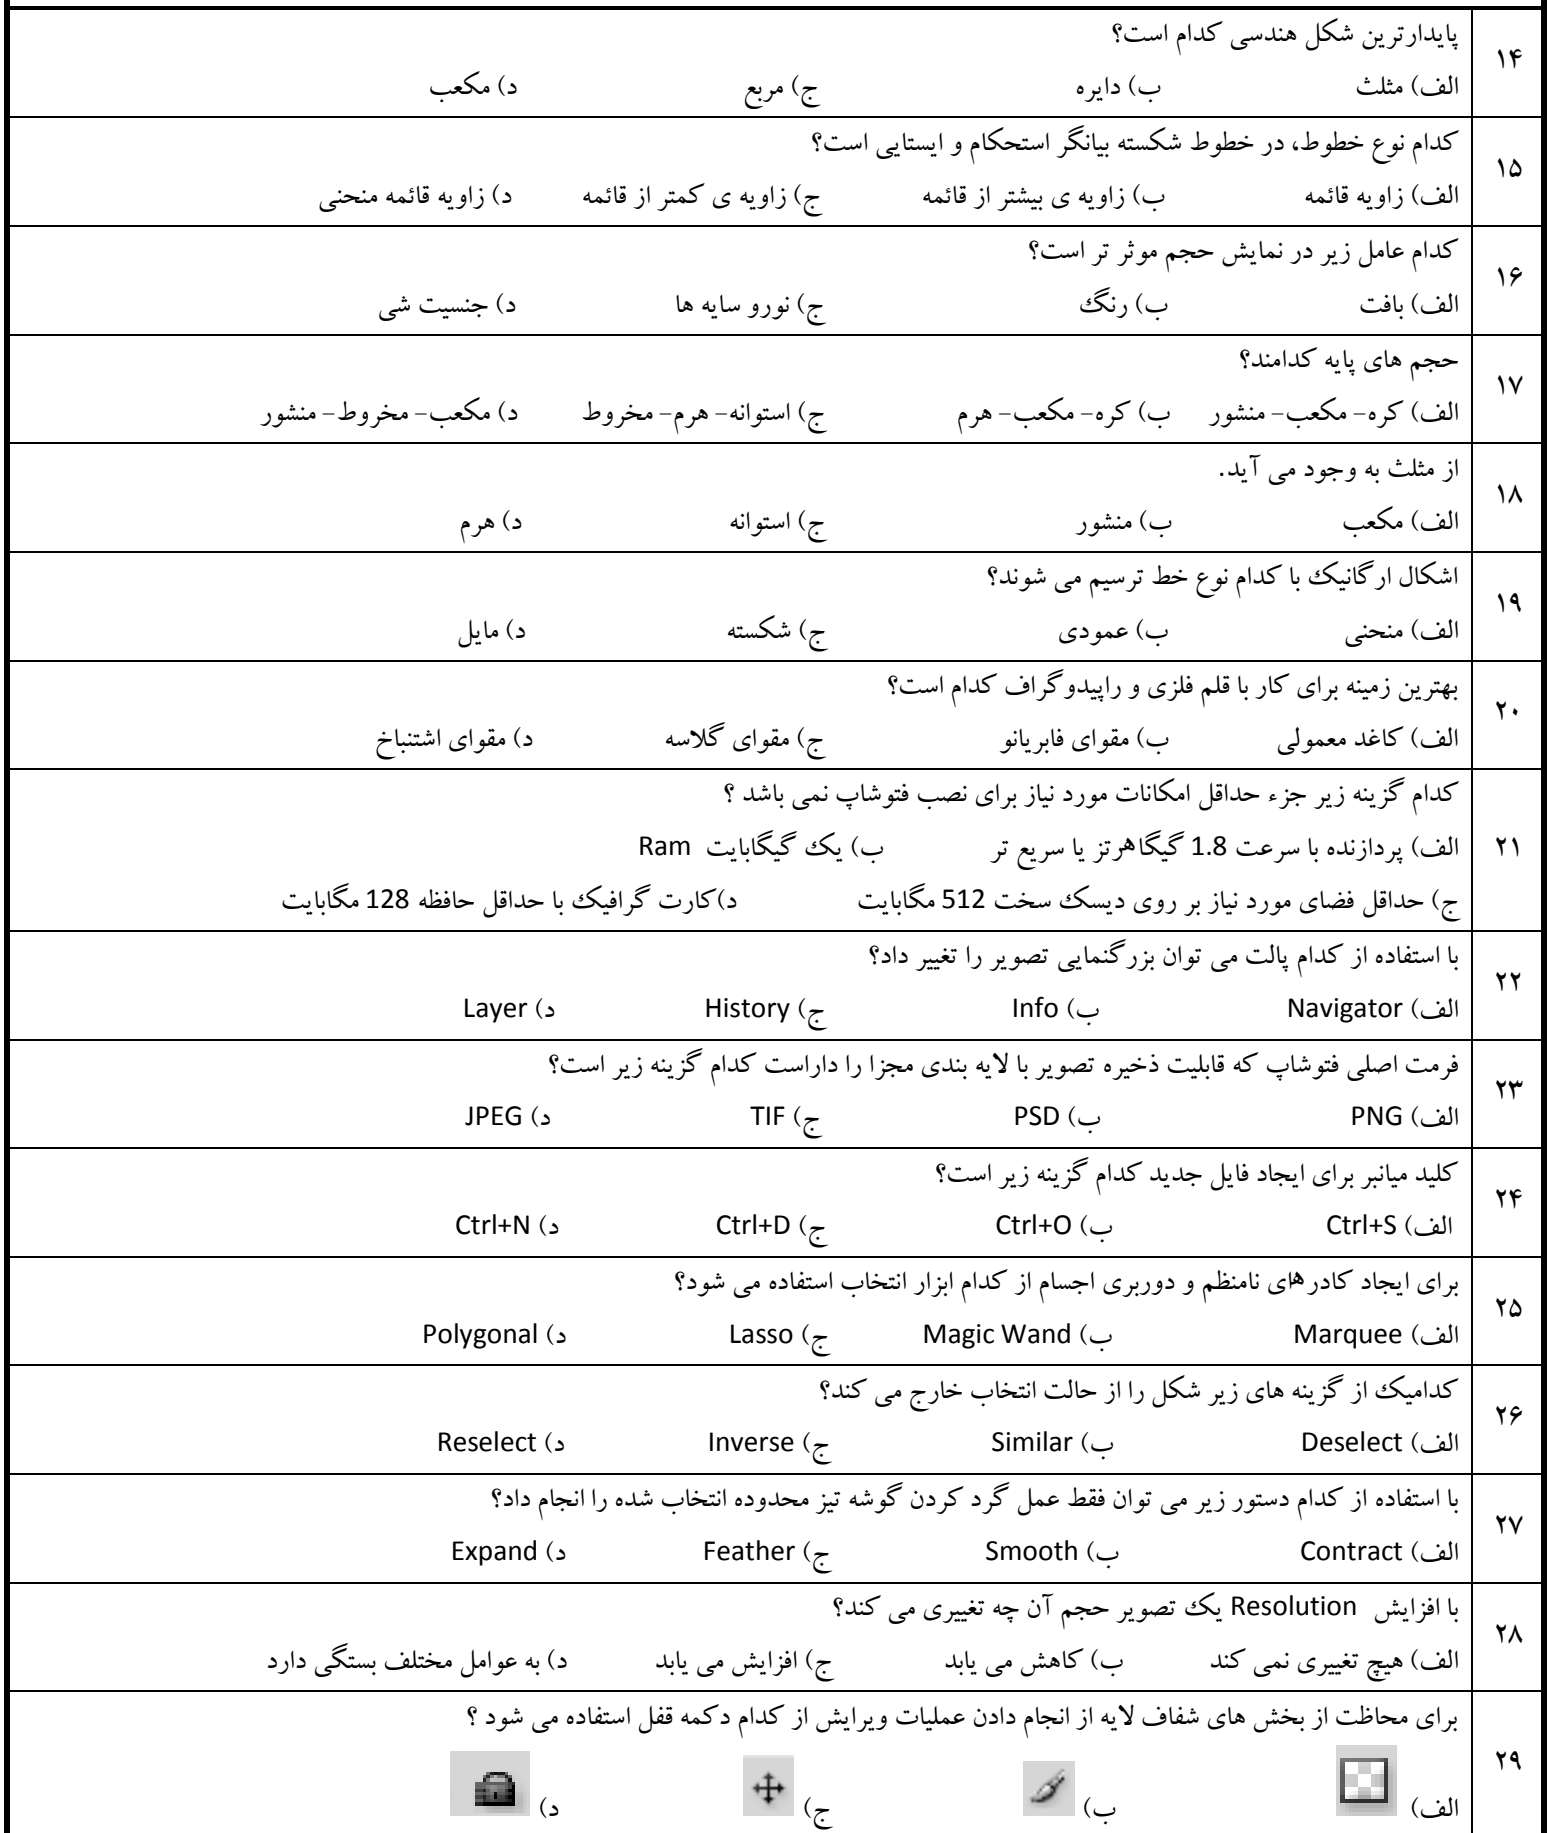 ۱۴
پایدارترین شکل هندسی کدام است؟
الف) مثلث ب) دایره ج) مربع د) مکعب
۱۵
کدام نوع خطوط، در خطوط شکسته بیانگر استحکام و ایستایی است؟
الف) زاویه قائمه ب) زاویه ی بیشتر از قائمه ج) زاویه ی کمتر از قائمه د) زاویه قائمه منحنی
۱۶
کدام عامل زیر در نمایش حجم موثر تر است؟
الف) بافت ب) رنگ ج) نورو سایه ها د) جنسیت شی
۱۷
حجم های پایه کدامند؟
الف) کره- مکعب- منشور ب) کره- مکعب- هرم ج) استوانه- هرم- مخروط د) مکعب- مخروط- منشور
۱۸
از مثلث به وجود می آید.
الف) مکعب ب) منشور ج) استوانه د) هرم
۱۹
اشکال ارگانیک با کدام نوع خط ترسیم می شوند؟
الف) منحنی ب) عمودی ج) شکسته د) مایل
۲۰
بهترین زمینه برای کار با قلم فلزی و راپیدوگراف کدام است؟
الف) کاغد معمولی ب) مقوای فابریانو ج) مقوای گلاسه د) مقوای اشتنباخ
۲۱
کدام گزینه زیر جزء حداقل امکانات مورد نیاز برای نصب فتوشاپ نمی باشد ؟
الف) پردازنده با سرعت 1.8 گیگاهرتز یا سریع تر ب) یک گیگابایت Ram
ج) حداقل فضای مورد نیاز بر روی دیسک سخت 512 مگابایت د)کارت گرافیک با حداقل حافظه 128 مگابایت
۲۲
با استفاده از کدام پالت می توان بزرگنمایی تصویر را تغییر داد؟
الف) Navigator ب) Info ج) History د) Layer
۲۳
فرمت اصلی فتوشاپ که قابلیت ذخیره تصویر با لایه بندی مجزا را داراست کدام گزینه زیر است؟
الف) PNG ب) PSD ج) TIF د) JPEG
۲۴
کلید میانبر برای ایجاد فایل جدید کدام گزینه زیر است؟
الف) Ctrl+S ب) Ctrl+O ج) Ctrl+D د) Ctrl+N
۲۵
برای ایجاد کادرهای نامنظم و دوربری اجسام از کدام ابزار انتخاب استفاده می شود؟
الف) Marquee ب) Magic Wand ج) Lasso د) Polygonal
۲۶
کدامیک از گزینه های زیر شکل را از حالت انتخاب خارج می کند؟
الف) Deselect ب) Similar ج) Inverse د) Reselect
۲۷
با استفاده از کدام دستور زیر می توان فقط عمل گرد کردن گوشه تیز محدوده انتخاب شده را انجام داد؟
الف) Contract ب) Smooth ج) Feather د) Expand
۲۸
با افزایش Resolution یک تصویر حجم آن چه تغییری می کند؟
الف) هیچ تغییری نمی کند ب) کاهش می یابد ج) افزایش می یابد د) به عوامل مختلف بستگی دارد
۲۹
برای محاظت از بخش های شفاف لایه از انجام دادن عملیات ویرایش از کدام دکمه قفل استفاده می شود ؟
الف) ب) ج) د)